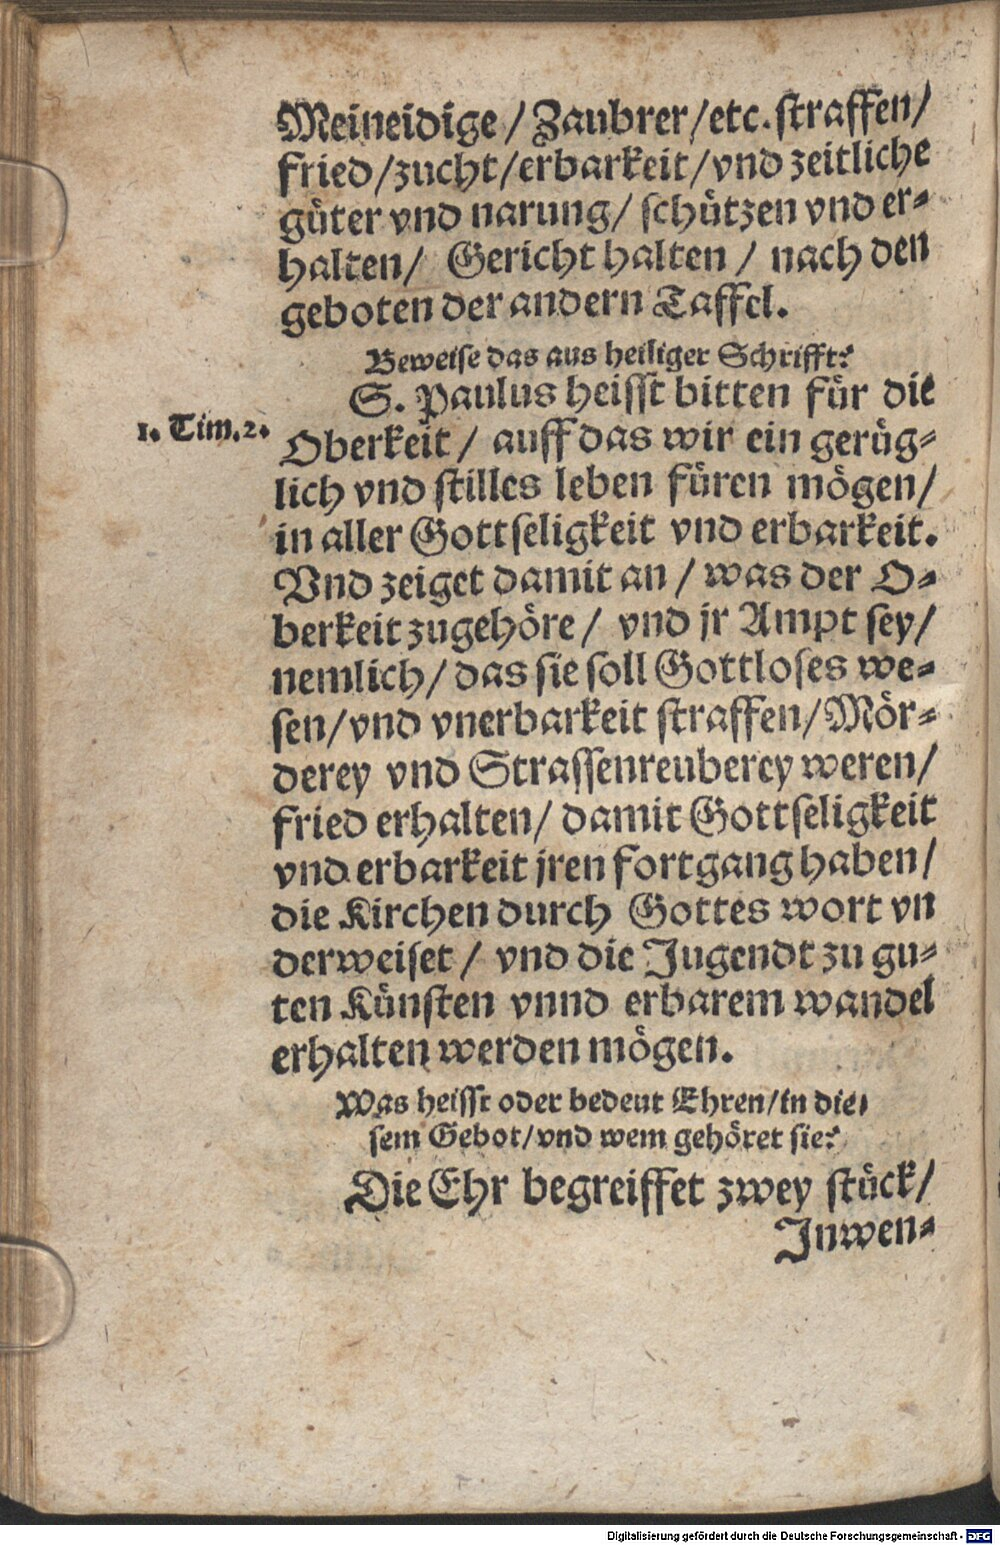 Meineidige / Zaubrer / etc. straffen /
fried / zucht / erbarkeit / vnd zeitliche
güter vnd narung / schützen vnd er-
halten / Gericht halten / nach den
geboten der andern Taffel.
Beweise das aus heiliger Schrifft?
S. Paulus heisst bitten für die
1. Tim. 2. Oberkeit / auff das wir ein gerüg-
lich vnd stilles leben füren mögen /
in aller Gottseligkeit vnd erbarkeit.
Vnd zeiget damit an / was der O-
berkeit zugehöre / vnd jr Ampt sey /
nemlich / das sie soll Gottloses we-
sen / vnd vnerbarkeit straffen / Mör-
derey vnd Strassenreuberey weren /
fried erhalten / damit Gottseligkeit
vnd erbarkeit jren fortgang haben /
die Kirchen durch Gottes wort vn
derweiset / vnd die Jugendt zu gu-
ten Künsten vnnd erbarem wandel
erhalten werden mögen.
Was heisst oder bedeut Ehren / in die-
sem Gebot / vnd wem gehöret sie?
Die Ehr begreiffet zwey stück /
Inwen-
Digitalisierung gefördert durch die Deutsche Forschungsgemeinschaft - DFG